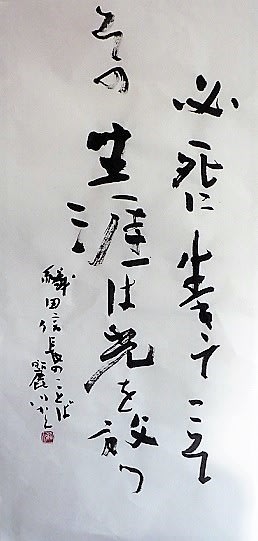 必死に生きてこそ
その生涯は光を放つ
織田信長のことば